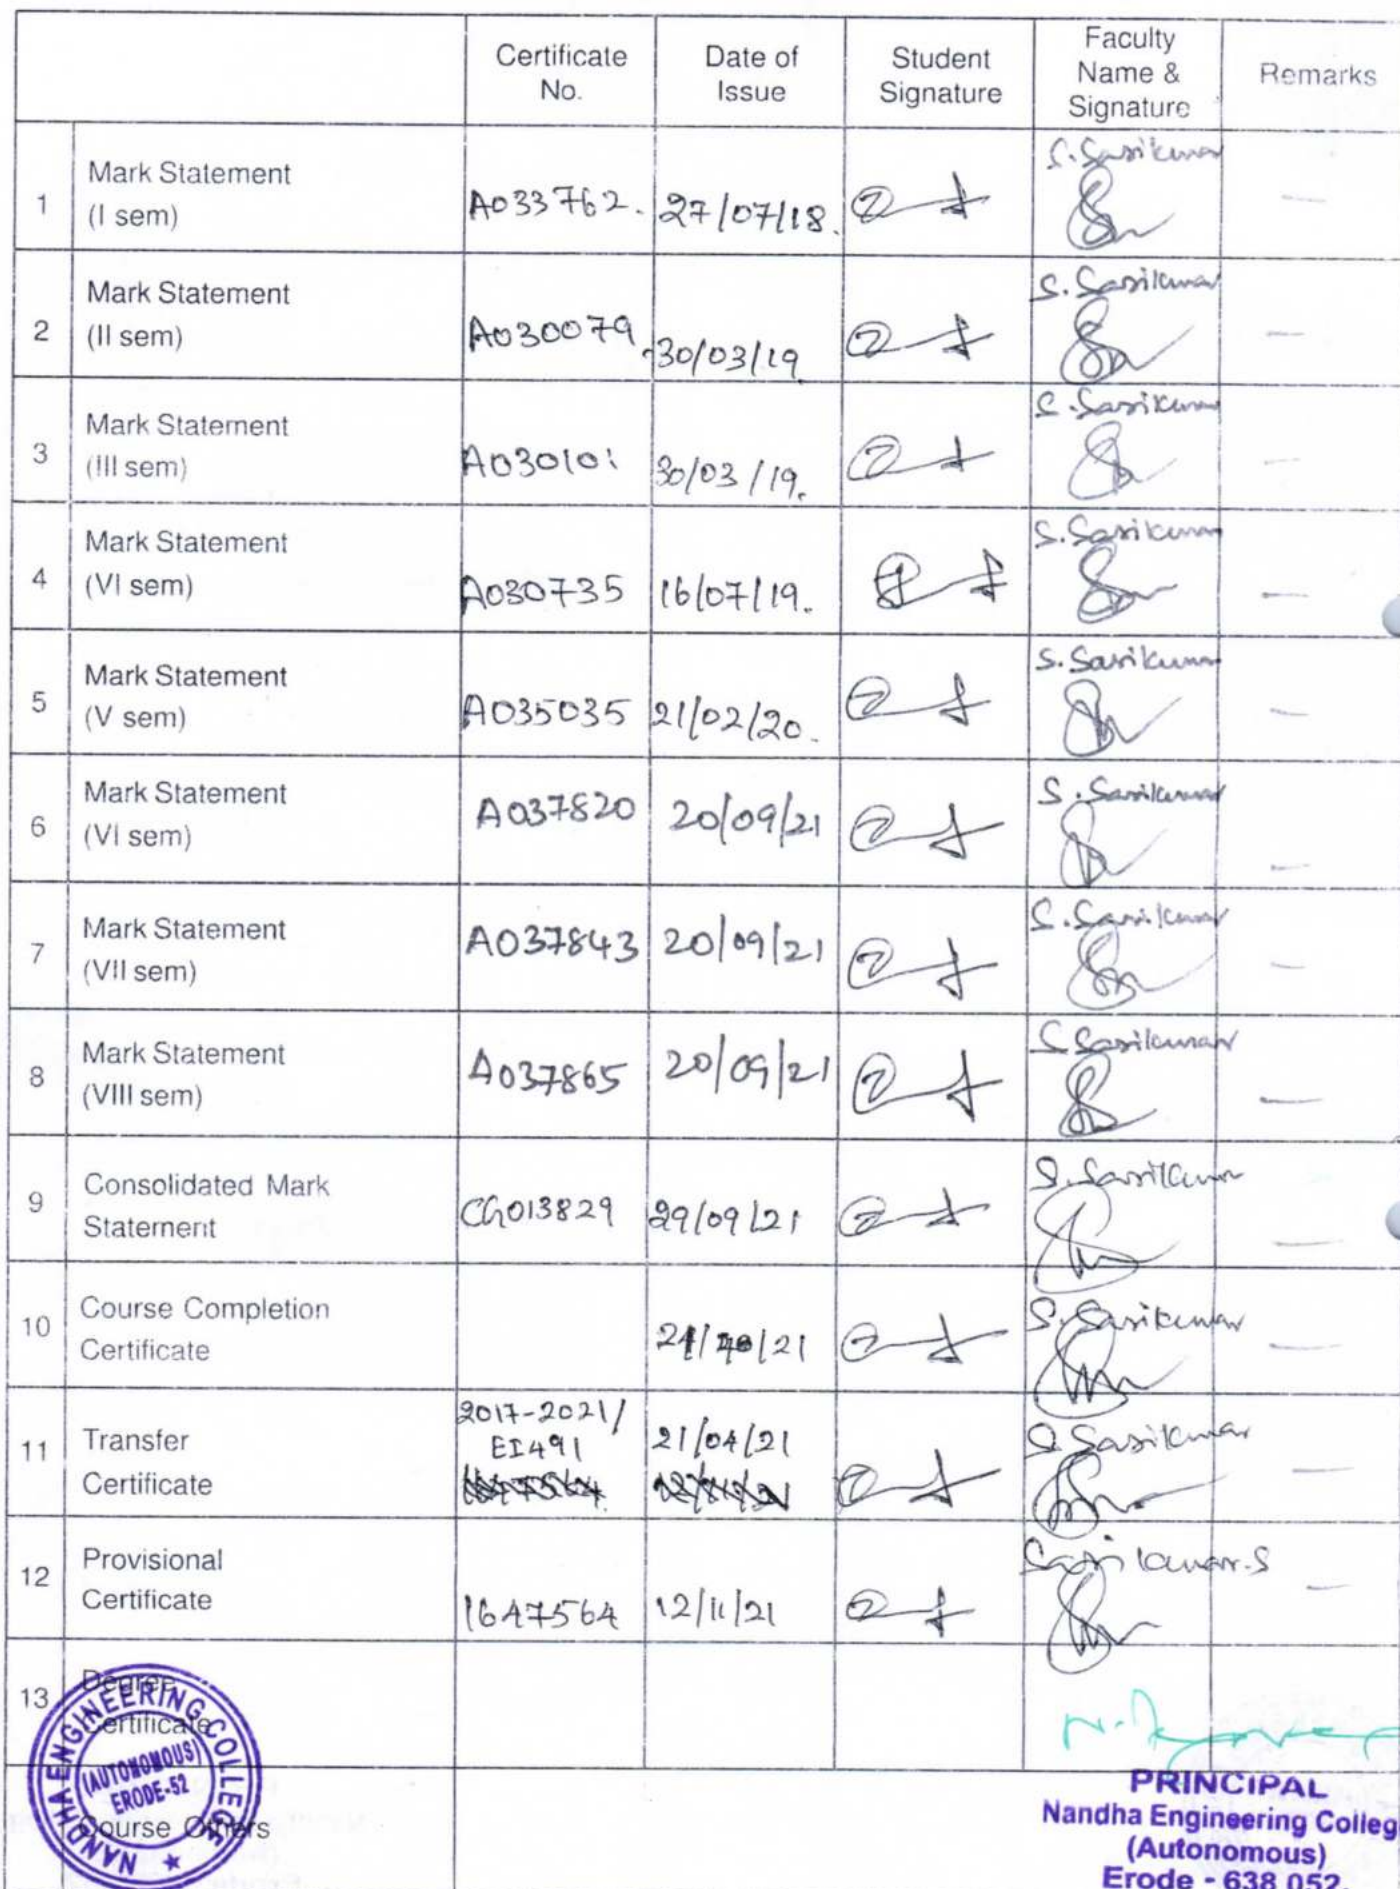 Certificate No. Date of Issue Student Signature Faculty Name & Signature Remarks
1 Mark Statement (I sem) A033762. 27/07/18. S. Sasikumar —
2 Mark Statement (II sem) A030079 30/03/19 S. Sasikumar —
3 Mark Statement (III sem) A030101 30/03/19. S. Sasikumar —
4 Mark Statement (VI sem) A030735 16/07/19. S. Sasikumar —
5 Mark Statement (V sem) A035035 21/02/20. S. Sasikumar —
6 Mark Statement (VI sem) A037820 20/09/21 S. Sasikumar —
7 Mark Statement (VII sem) A037843 20/09/21 S. Sasikumar —
8 Mark Statement (VIII sem) A037865 20/09/21 S Sasikumar —
9 Consolidated Mark Statement CG013829 29/09/21 S. Sasikumar —
10 Course Completion Certificate /21 S. Sasikumar —
11 Transfer Certificate 2017-2021/ EI491 21/04/21 S Sasikumar —
12 Provisional Certificate 1647564 12/11/21 Sasikumar.S —
13 Degree Certificate
Course Others
NANDHA ENGINEERING COLLEGE
(AUTONOMOUS)
ERODE-52
PRINCIPAL
Nandha Engineering Colleg
(Autonomous)
Erode - 638 052.